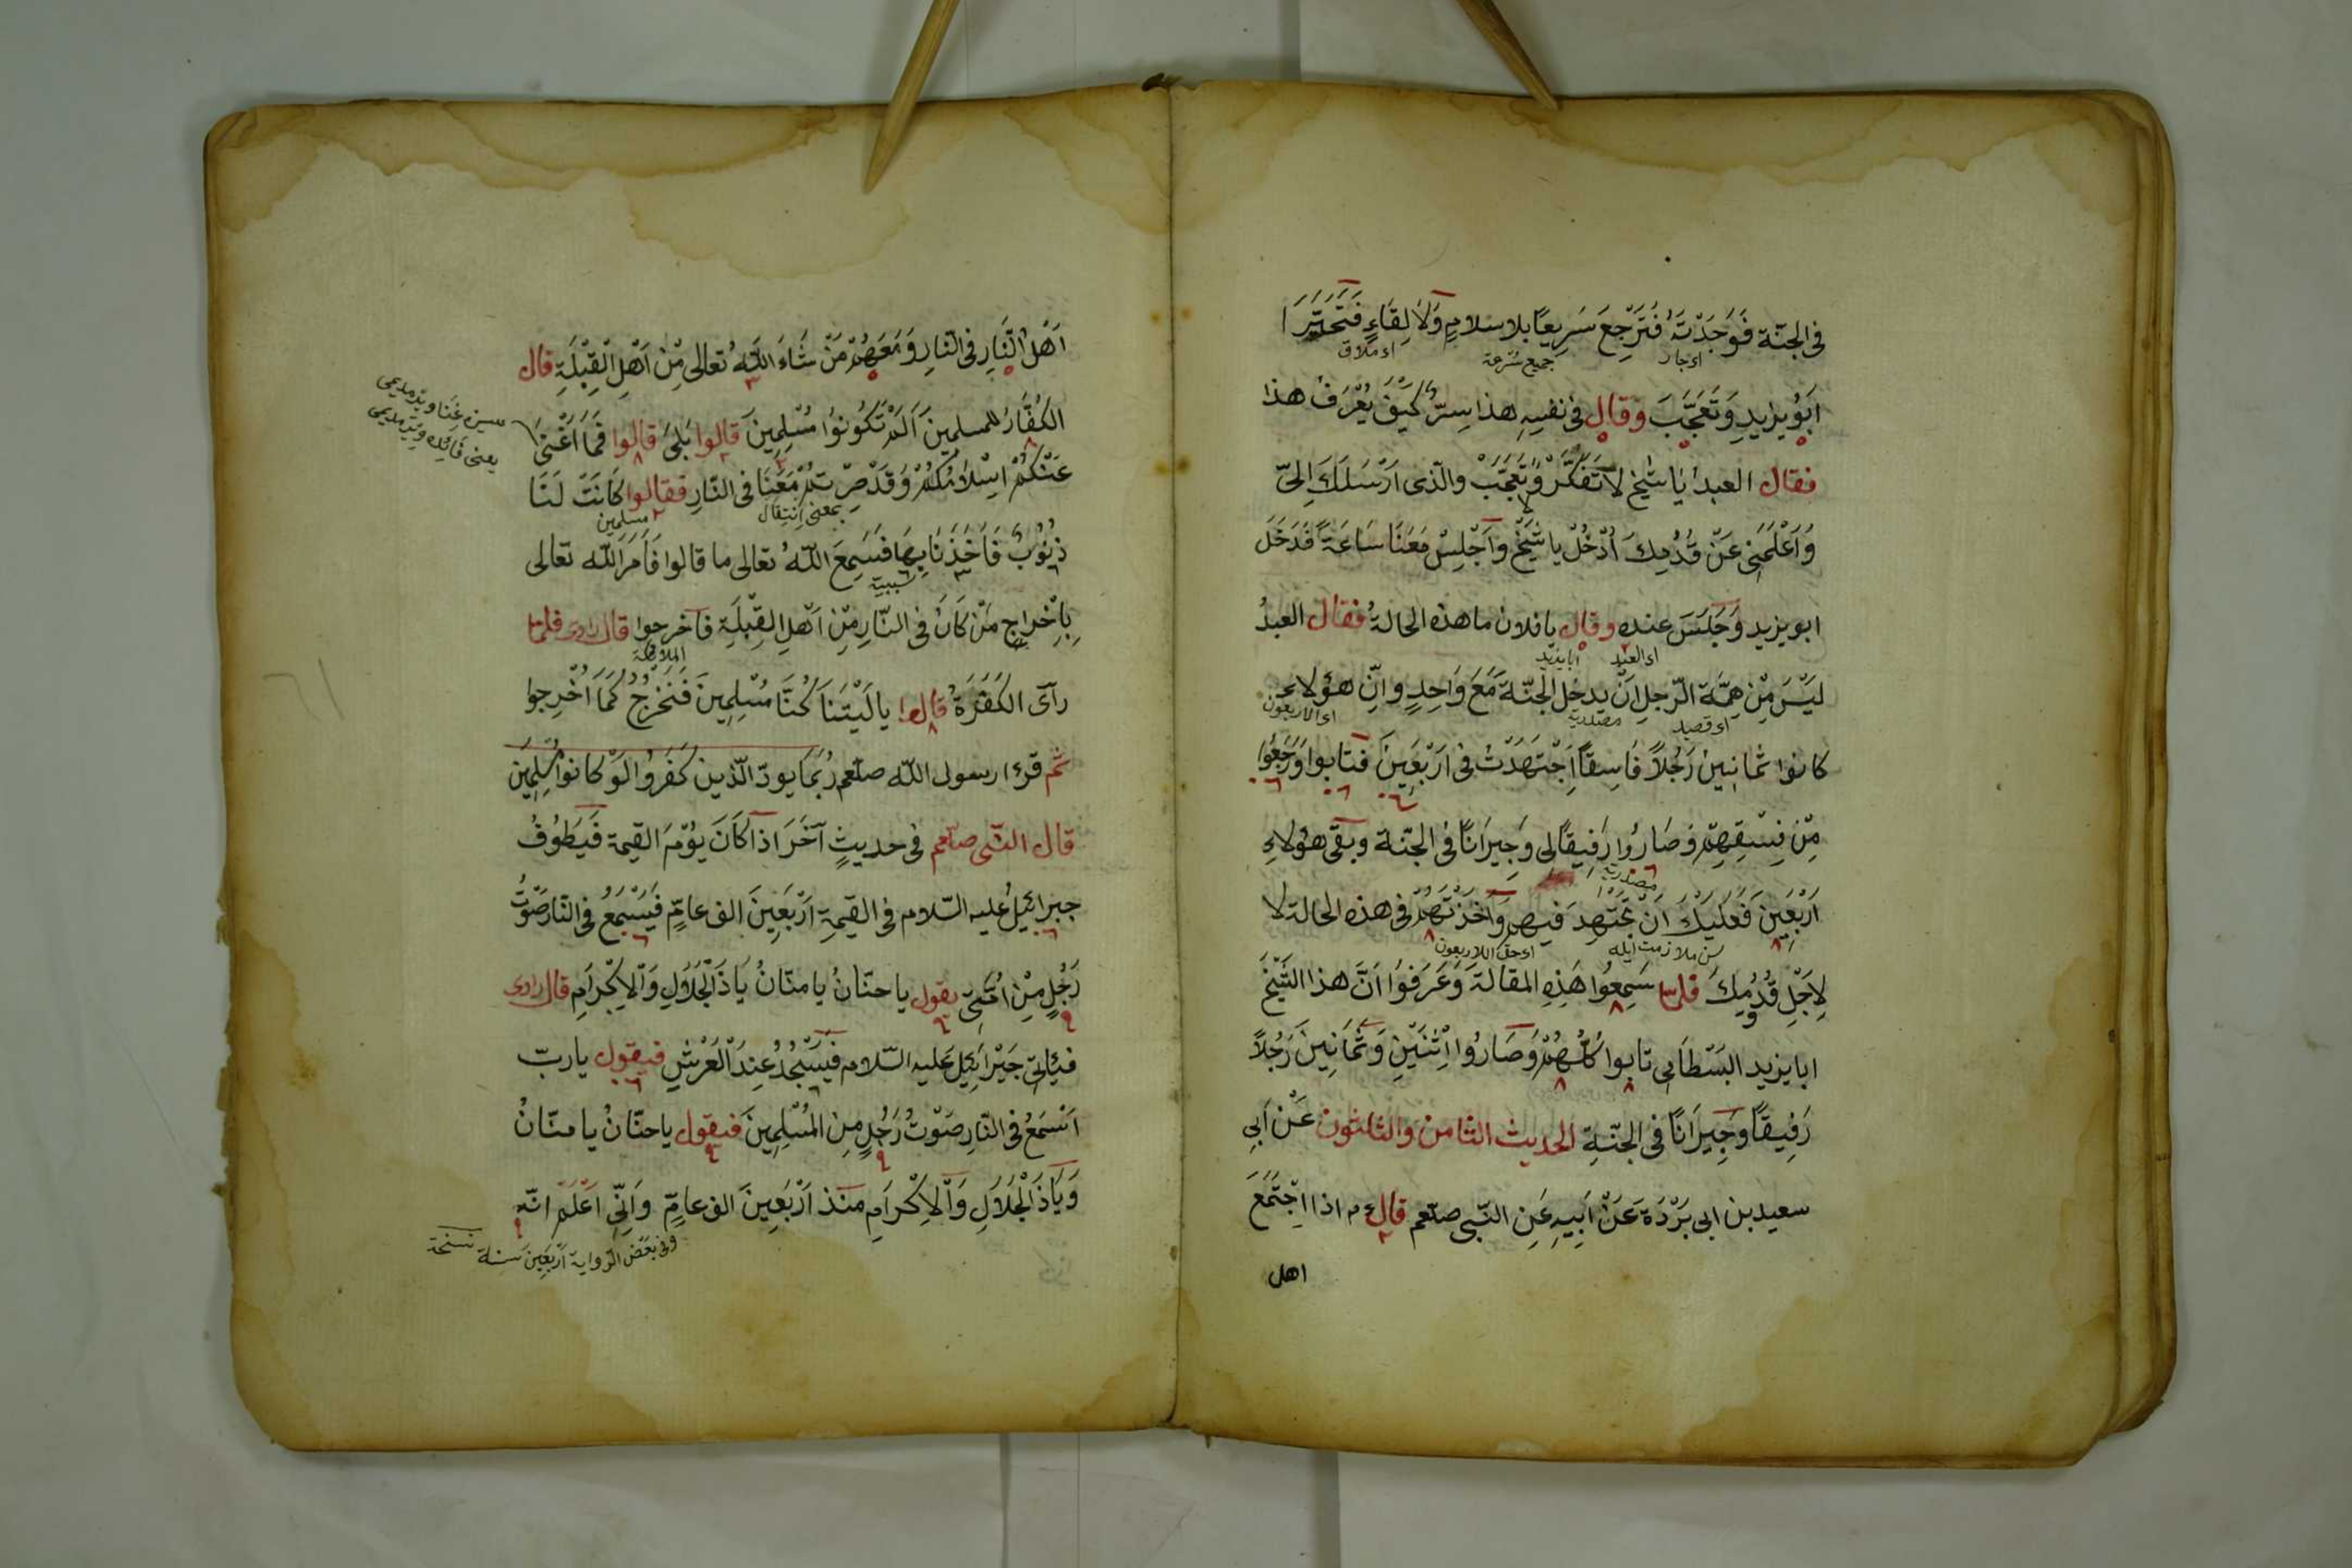 فى الجنّة فَوَجَدْتَهُ فَتَرْجِعَ سَرِيعًا بلا سلامٍ وَلَا لِقَاءٍ فَتَحَيَّرَ
اى جار
جمع سُرعة
اى ملاق
اَبُو يزيدٍ وَتَعَجَّبَ وقال فى نفسِهِ هذا سِرٌّ كَيْفَ يُعْرَفُ هذا
فقال العبدُ يَا شَيْخ لَا تَفَكَّرْ وَتَعَجَّبْ والّذى اَرْسَلَكَ اِلىَّ
وَاَعْلَمَنِى عَنْ قُدُمِكَ اُدْخُلْ يا شَيْخُ وَاَجْلِسْ مَعَنَا سَاعَةً فَدَخَلَ
ابو يزيد وَجَلَسَ عنده وقال يا فلان ما هذه الحالةُ فقال العبدُ
اى العبد
ابا يزيد
لَيْسَ مِنْ هِمَّةِ الرّجلِ اَنْ يدخل الجنّةَ مَعَ وَاحِدٍ واِنّ هؤلاءِ
اى قصد
مصدرية
اى الاربعون
كانوا ثمانينَ رَجُلاً فَاسِقاً اِجْتَهَدْتُ فى اَرْبَعِينَ فتابوا وَرَجَعُوا
مِنْ فِسْقِهِمْ وَصَارُوا رَفِيقًا لى وَجِيرَانًا فى الجنّة وبقى هؤلاءِ
مصدرية
اَرْبَعِينَ فَعَلَيْكَ اَنْ تجتهدَ فيهم وَآخَذْتَهُمْ فى هذه الحالة لا
سن ملازمت ايله
اى حق الاربعون
لِاَجْلِ قُدُمِكَ فلمّا سَمِعُوا هَذِهِ المقالةَ وَعَرَفُوا اَنَّ هذا الشَّيْخَ
ابا يزيد البَسْطَامِى تابوا كُلُّهُمْ وَصَارُوا اِثْنَيْنِ وَثَمَانِينَ رَجُلاً
رَفِيقًا وَجِيرَانًا فى الجنّةِ الحديث الثامن والثلثون عَنْ اَبِى
سعيد بن ابى بَرْدَةَ عَنْ اَبِيهِ عَنِ النّبى صلّعم قال ءم اذا اجْتَمَعَ
اهل
اَهْلُ النَّارِ فى النّارِ وَمَعَهُمْ مَنْ شَاءَ اللهُ تعالى مِنْ اَهْلِ الْقِبْلَةِ قال
الكُفَّارُ للمسلمينَ اَلَمْ تَكُونُوا مُسْلِمِينَ قالوا بَلىَ قالوا فَمَا اَغْنىَ
سىزه غنا ويرمديمى
يعنى فائده ويرمديمى
عَنْكُمْ اِسْلَامُكُمْ وَقَدْ صِرْتُمْ مَعَنَا فى النّارِ فقالوا كَانَتْ لَنَا
بمعنى انتقال
مسلمين
ذُنُوبٌ فَاَخَذَنَا بِهَا فَسَمِعَ اللهُ تعالى ما قالوا فَاَمَرَ الله تعالى
سببيّة
بِاِخْراجِ مَنْ كَانَ فى النّارِ مِنْ اَهْلِ القِبْلَةِ فاَخرجوا قال راوى فلمّا
الملائكة
رآى الكَفَرَةُ قالوا يا لَيْتَنَا كُنَّا مُسْلِمِينَ فَنَخْرُجُ كَمَا اُخْرِجوا
ثم قرءا رسول الله صلّعم رُبَمَا يودّ الّذين كَفَرُوا لَوْ كانوا مُسْلِمِين
قال النّبى صلّعم فى حديثٍ آخَرَ اذا كَانَ يَوْمَ القيمة فَيَطُوفُ
جبرائيلُ عليه السّلام فى القيمةِ اَرْبَعِينَ الف عامٍ فَيَسْمَعُ فى النّار صَوْتَ
رَجُلٍ مِنْ اُمَّتِى يقول يا حنّانُ يا منّانُ يَا ذَا الْجَلَالِ وَالْاِكْرَامِ قال راوى
فيأتى جَبْرَائِيلَ عليه السّلام فَيَسْجُدُ عِنْدَ الْعَرْشِ فيقول يا ربّ
اَسْمَعُ فى النّارِ صَوْتُ رَجُلٍ مِنَ المُسْلِمِينَ فيقول يا حنّانُ يا منّانُ
وَيَا ذَا الْجَلَالِ وَالْاِكْرَامِ منذ اَرْبَعِينَ الف عامٍ وَاِنِّى اَعْلَمُ انّه
وفى بَعْض الرّواية اَرْبَعِينَ سنة نسخة